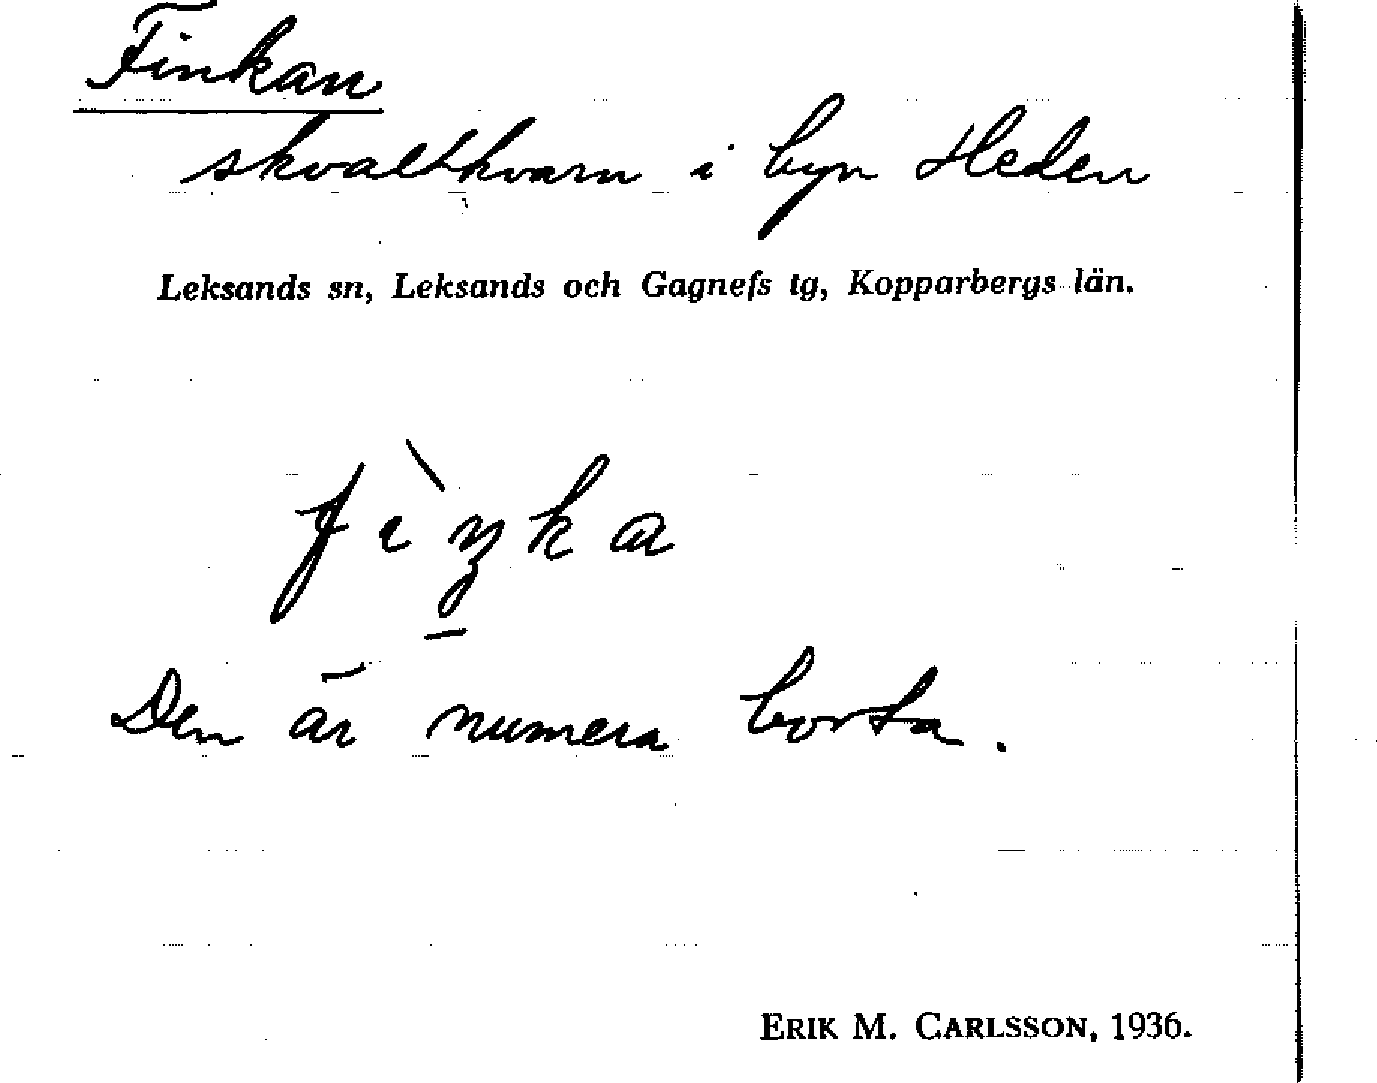 Finkan
skvaltkvarn i byn Heden
Leksands sn, Leksands och Gagnefs tg, Kopparbergs län.
fìŋka
Den är numera borta.
ERIK M. CARLSSON, 1936.